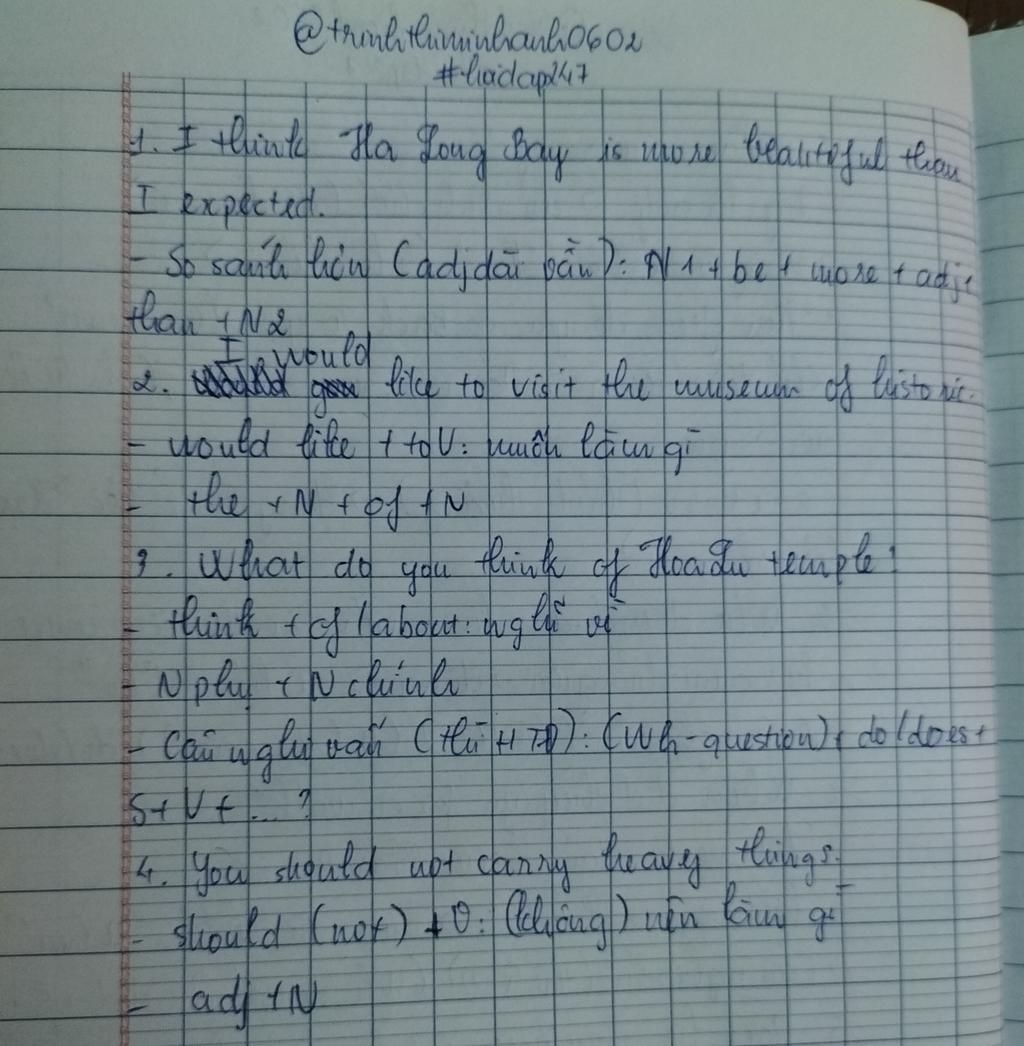 @trinhthiminhanh0602
#hoidap247
1. I think Ha Long Bay is more beautiful than
I expected.
- So sánh hơn (adj dài vần): N1 + be + more + adj +
than + N2
I would
2. like to visit the museum of historic.
- would like + to V: muốn làm gì
- the + N + of + N
3. What do you think of Hoa Lu temple?
- think + of / about: nghĩ về
- N phụ + N chính
- Câu nghi vấn (thì HTĐ): (Wh-question) + do/does +
S + V + ... ?
4. You should not carry heavy things.
- should (not) + V: (không) nên làm gì
- adj + N